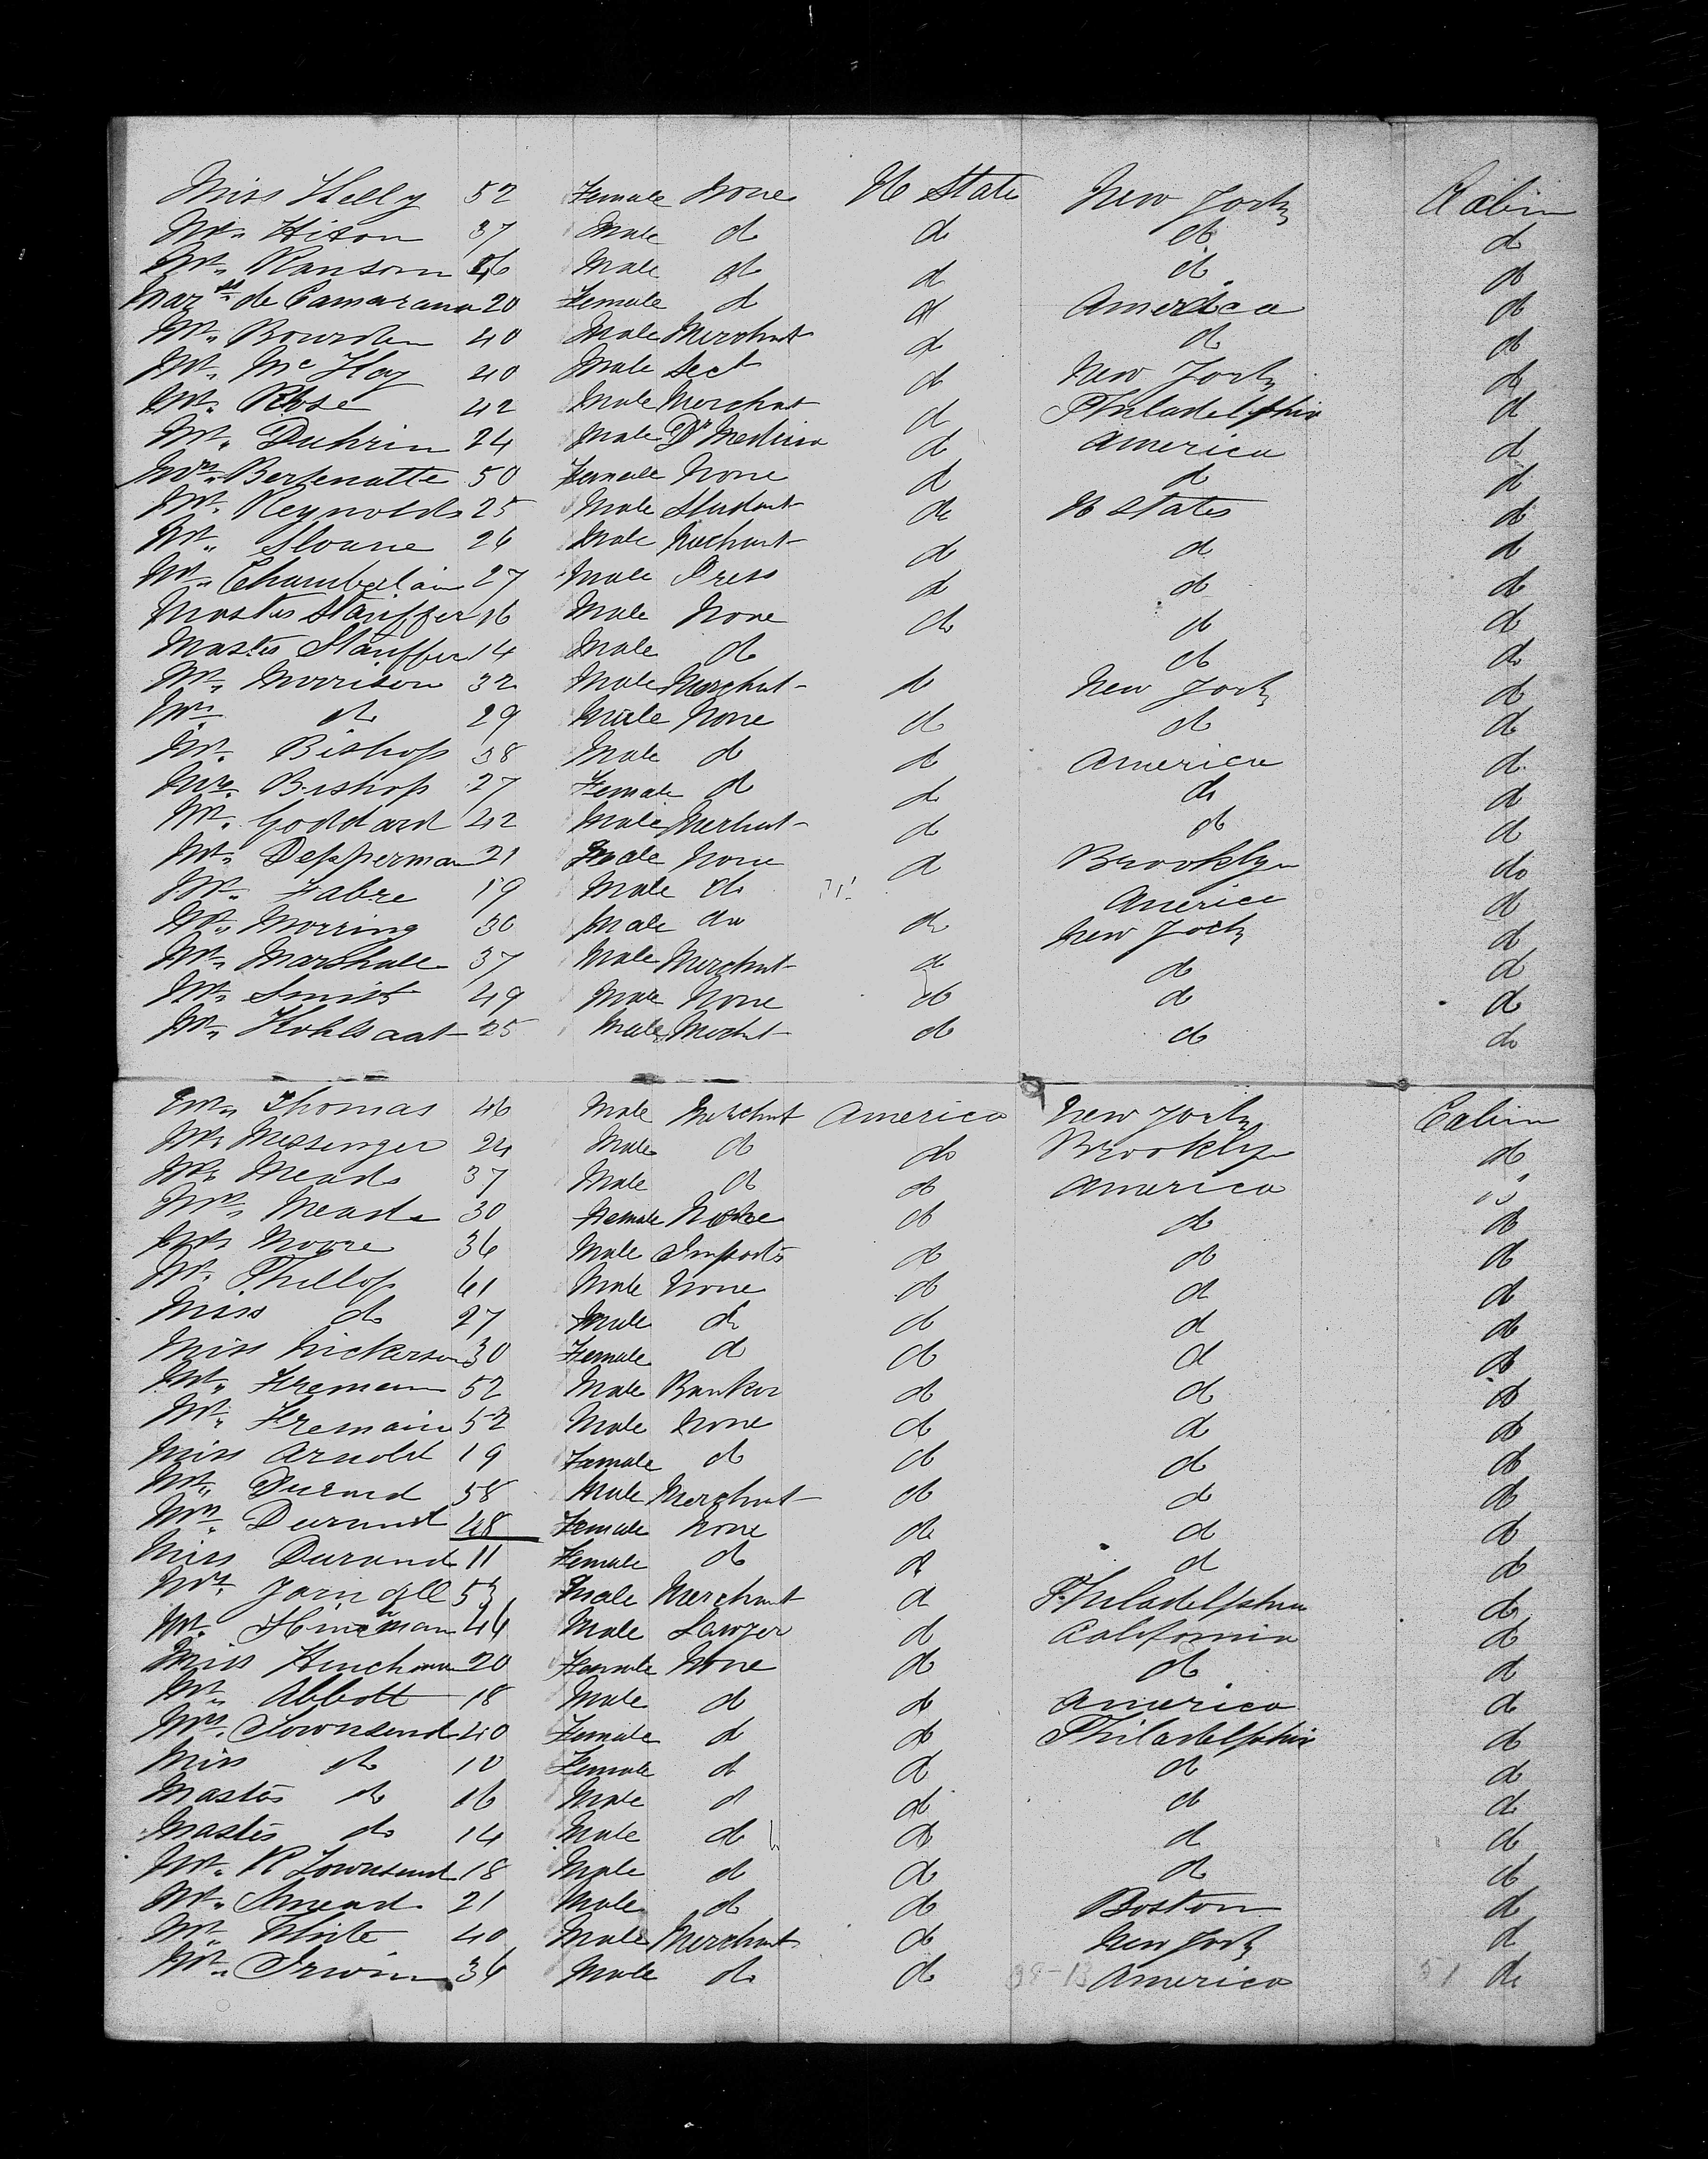 Miss Kelly 52 Female None U State New York Cabin
Mr. Hixon 37 Male do do do do
Mr. Ransom 46 Male do do do do
de Camarana 20 Female do do America do
Mr. Bourden 40 Male Merchant do do do
Mr. Mc Kay 40 Male Sect do New York do
Mr. Rose 42 Male Merchant do Philadelphia do
Mr. Duhrin 24 Male Dr Medicin do America do
Mrs. Bertenatte 50 Female None do do do
Mr. Reynolds 25 Male Student do U States do
Mr. Sloane 26 Male Merchant do do do
Mr. Chamberlain 27 Male Press do do do
Master Stauffer 16 Male None do do do
Master Stauffer 14 Male do do do
Mr. Morrison 32 Male Merchant do New York do
Mrs. do 29 Male None do do do
Mr. Bishop 38 Male do do America do
Mrs. Bishop 27 Female do do do do
Mr. Goddard 42 Male Merchant do do do
Mr. Depperman 21 Male None do Brooklyn do
Mr. Fabre 19 Male do America do
Mr. Morring 30 Male do do New York do
Mr. Marshall 37 Male Merchant do do do
Mr. Smith 49 Male None do do do
Mr. Kohlsaat 25 Male Mercht do do do
Mr. Thomas 46 Male Merchant America New York Cabin
Mr. Messenger 24 Male do do Brooklyn do
Mr. Meads 37 Male do do America
Mrs. Meads 30 Female None do do do
Mr. Moore 36 Male Imports do do do
Mr. Phillop 61 Male None do do do
Miss do 27 Male do do do do
Miss Nickerson 30 Female do do do do
Mr. Fremain 52 Male Banker do do do
Mr. Fremain 52 Male None do do do
Miss Arnold 19 Female do do do do
Mr. Durand 58 Male Merchant do do do
Mrs. Durand 48 Female None do do do
Miss Durand 11 Female do do do do
Mr. 53 Male Merchant do Philadelphia do
Mr. Hinchman 46 Male Lawyer do California do
Miss Hinchman 20 Female None do do do
Mr. Abbott 18 Male do do America do
Mrs. Townsend 40 Female do do Philadelphia do
Miss do 10 Female do do do do
Master do 16 Male do do do do
Master do 14 Male do do do do
Mr. R Townsend 18 Male do do do do
Mr. Smead 21 Male do do Boston do
Mr. White 40 Male Merchant do New York do
Mr. Irwin 36 Male do do America do